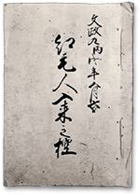 文政九丙戌年
紅毛人入来之控